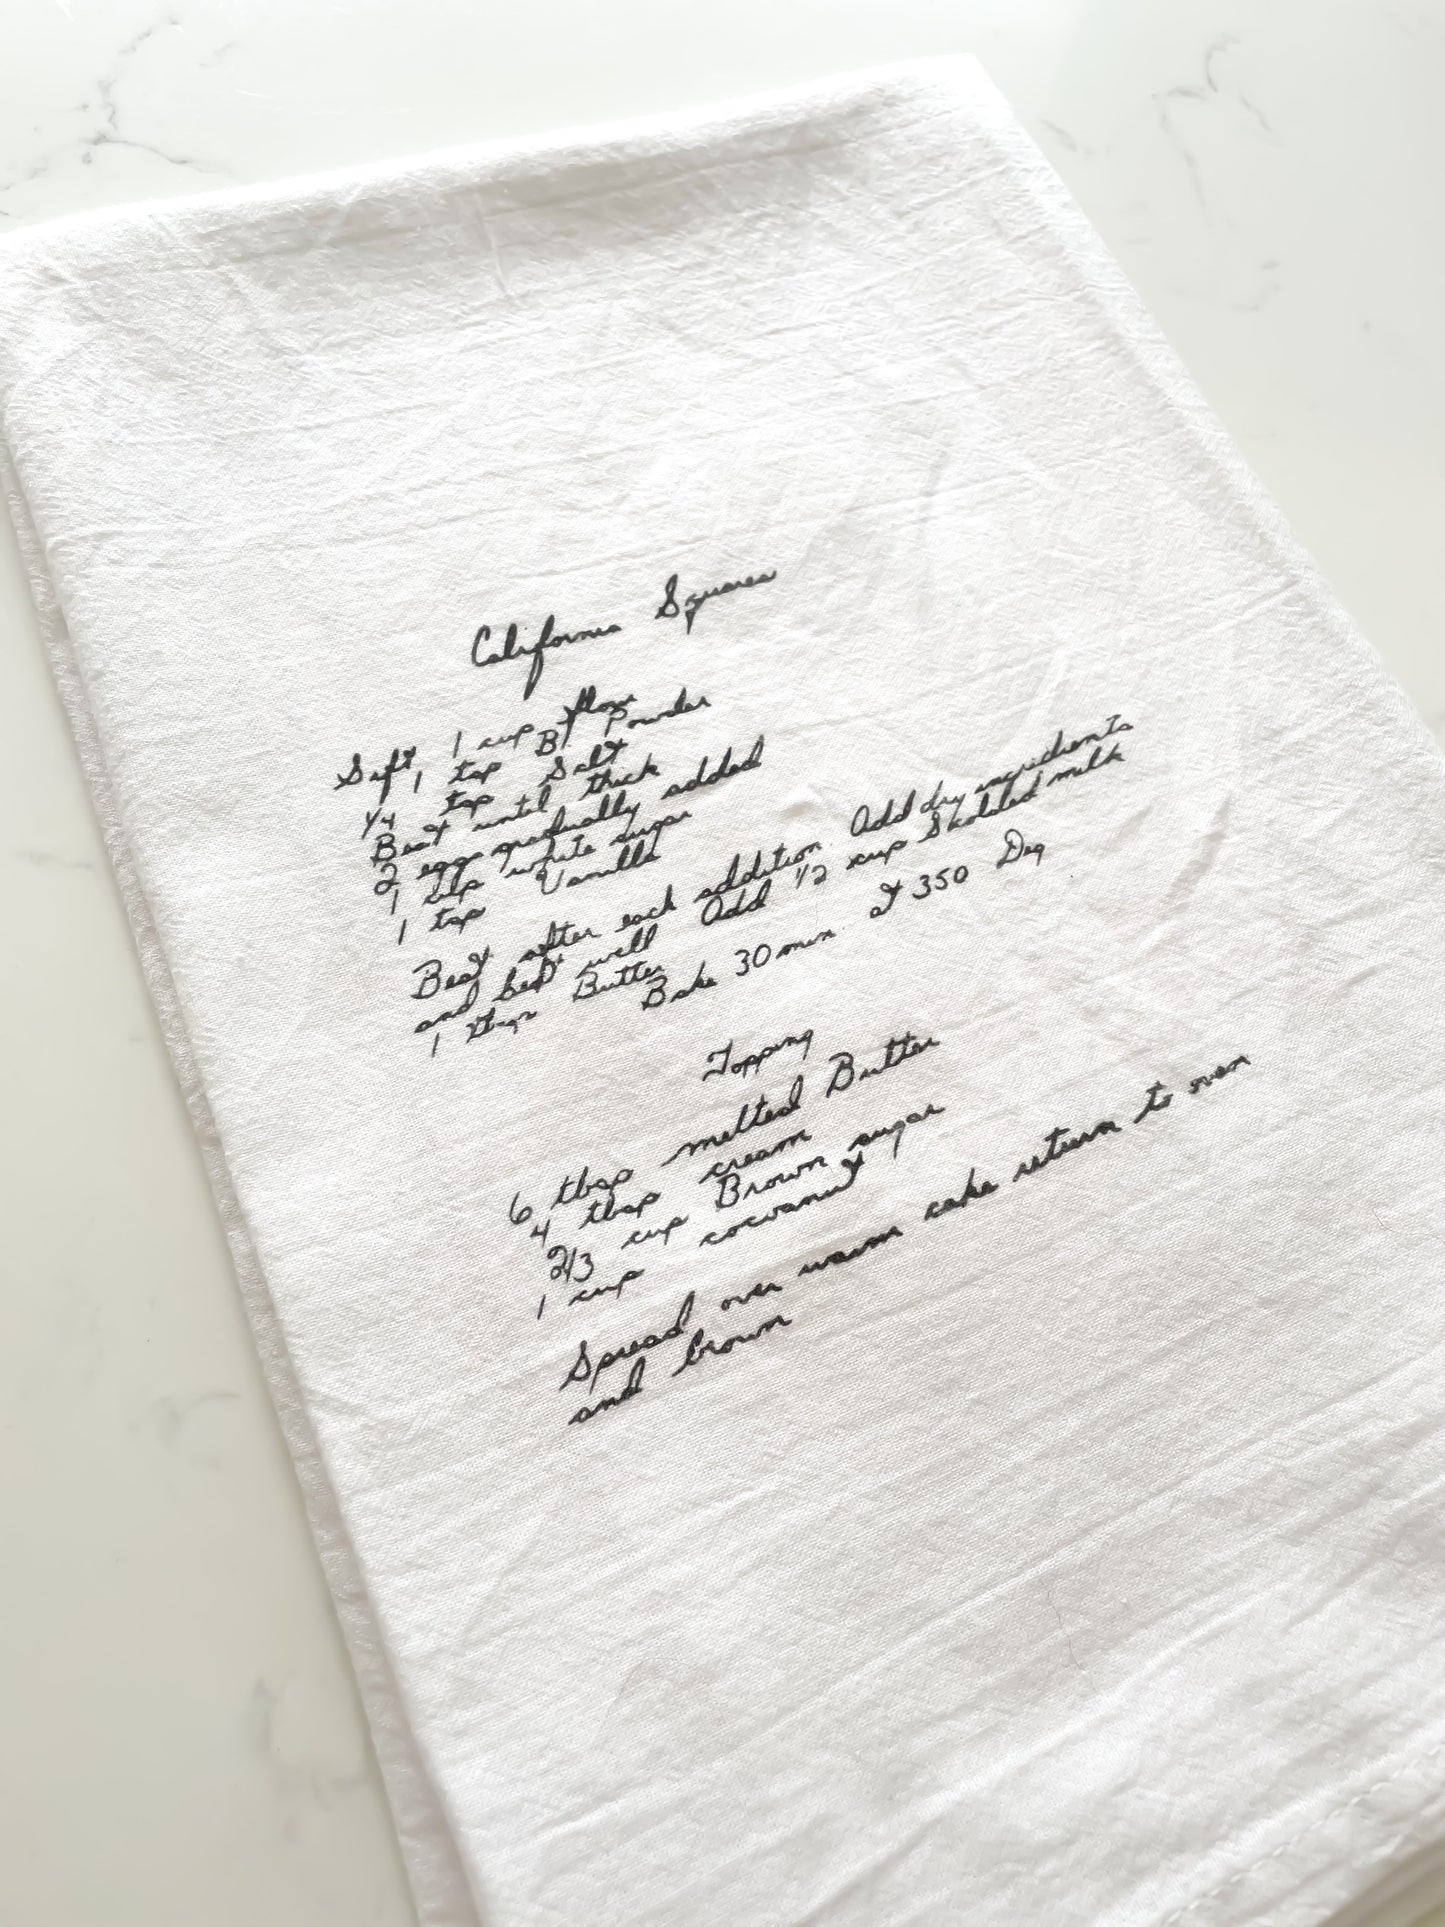 California Squares
Sift 1 cup flour
1 tsp B. Powder
1/4 tsp Salt
Beat until thick
2 eggs gradually added
1 cup white sugar
1 tsp Vanilla
Beat after each addition Add dry ingredients
and beat well Add 1/2 cup Skalded milk
1 tbsp Butter Bake 30 min at 350 Deg
Topping
6 tbsp melted Butter
4 tbsp cream
2/3 cup Brown sugar
1 cup cocoanut
Spread over warm cake return to oven
and brown